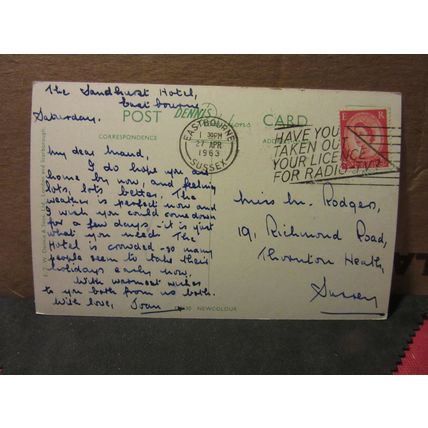 The Sandhurst Hotel,
Eastbourne
Saturday.
POST DENNIS CARD
CORRESPONDENCE
EASTBOURNE
1 30PM
27 APR
1963
SUSSEX
E R
HAVE YOU
TAKEN OUT
YOUR LICENCE
FOR RADIO TV?
My dear Maud,
I do hope you are
home by now, and feeling
lots, lots better. The
weather is perfect now and
I wish you could come down
for a few days - it is just
what you need. The
Hotel is crowded - so many
people seem to take their
holidays early now.
With warmest wishes
to you both from us both.
With love, Joan
Miss M. Rodgers,
19, Richmond Road,
Thornton Heath,
Surrey
NEWCOLOUR